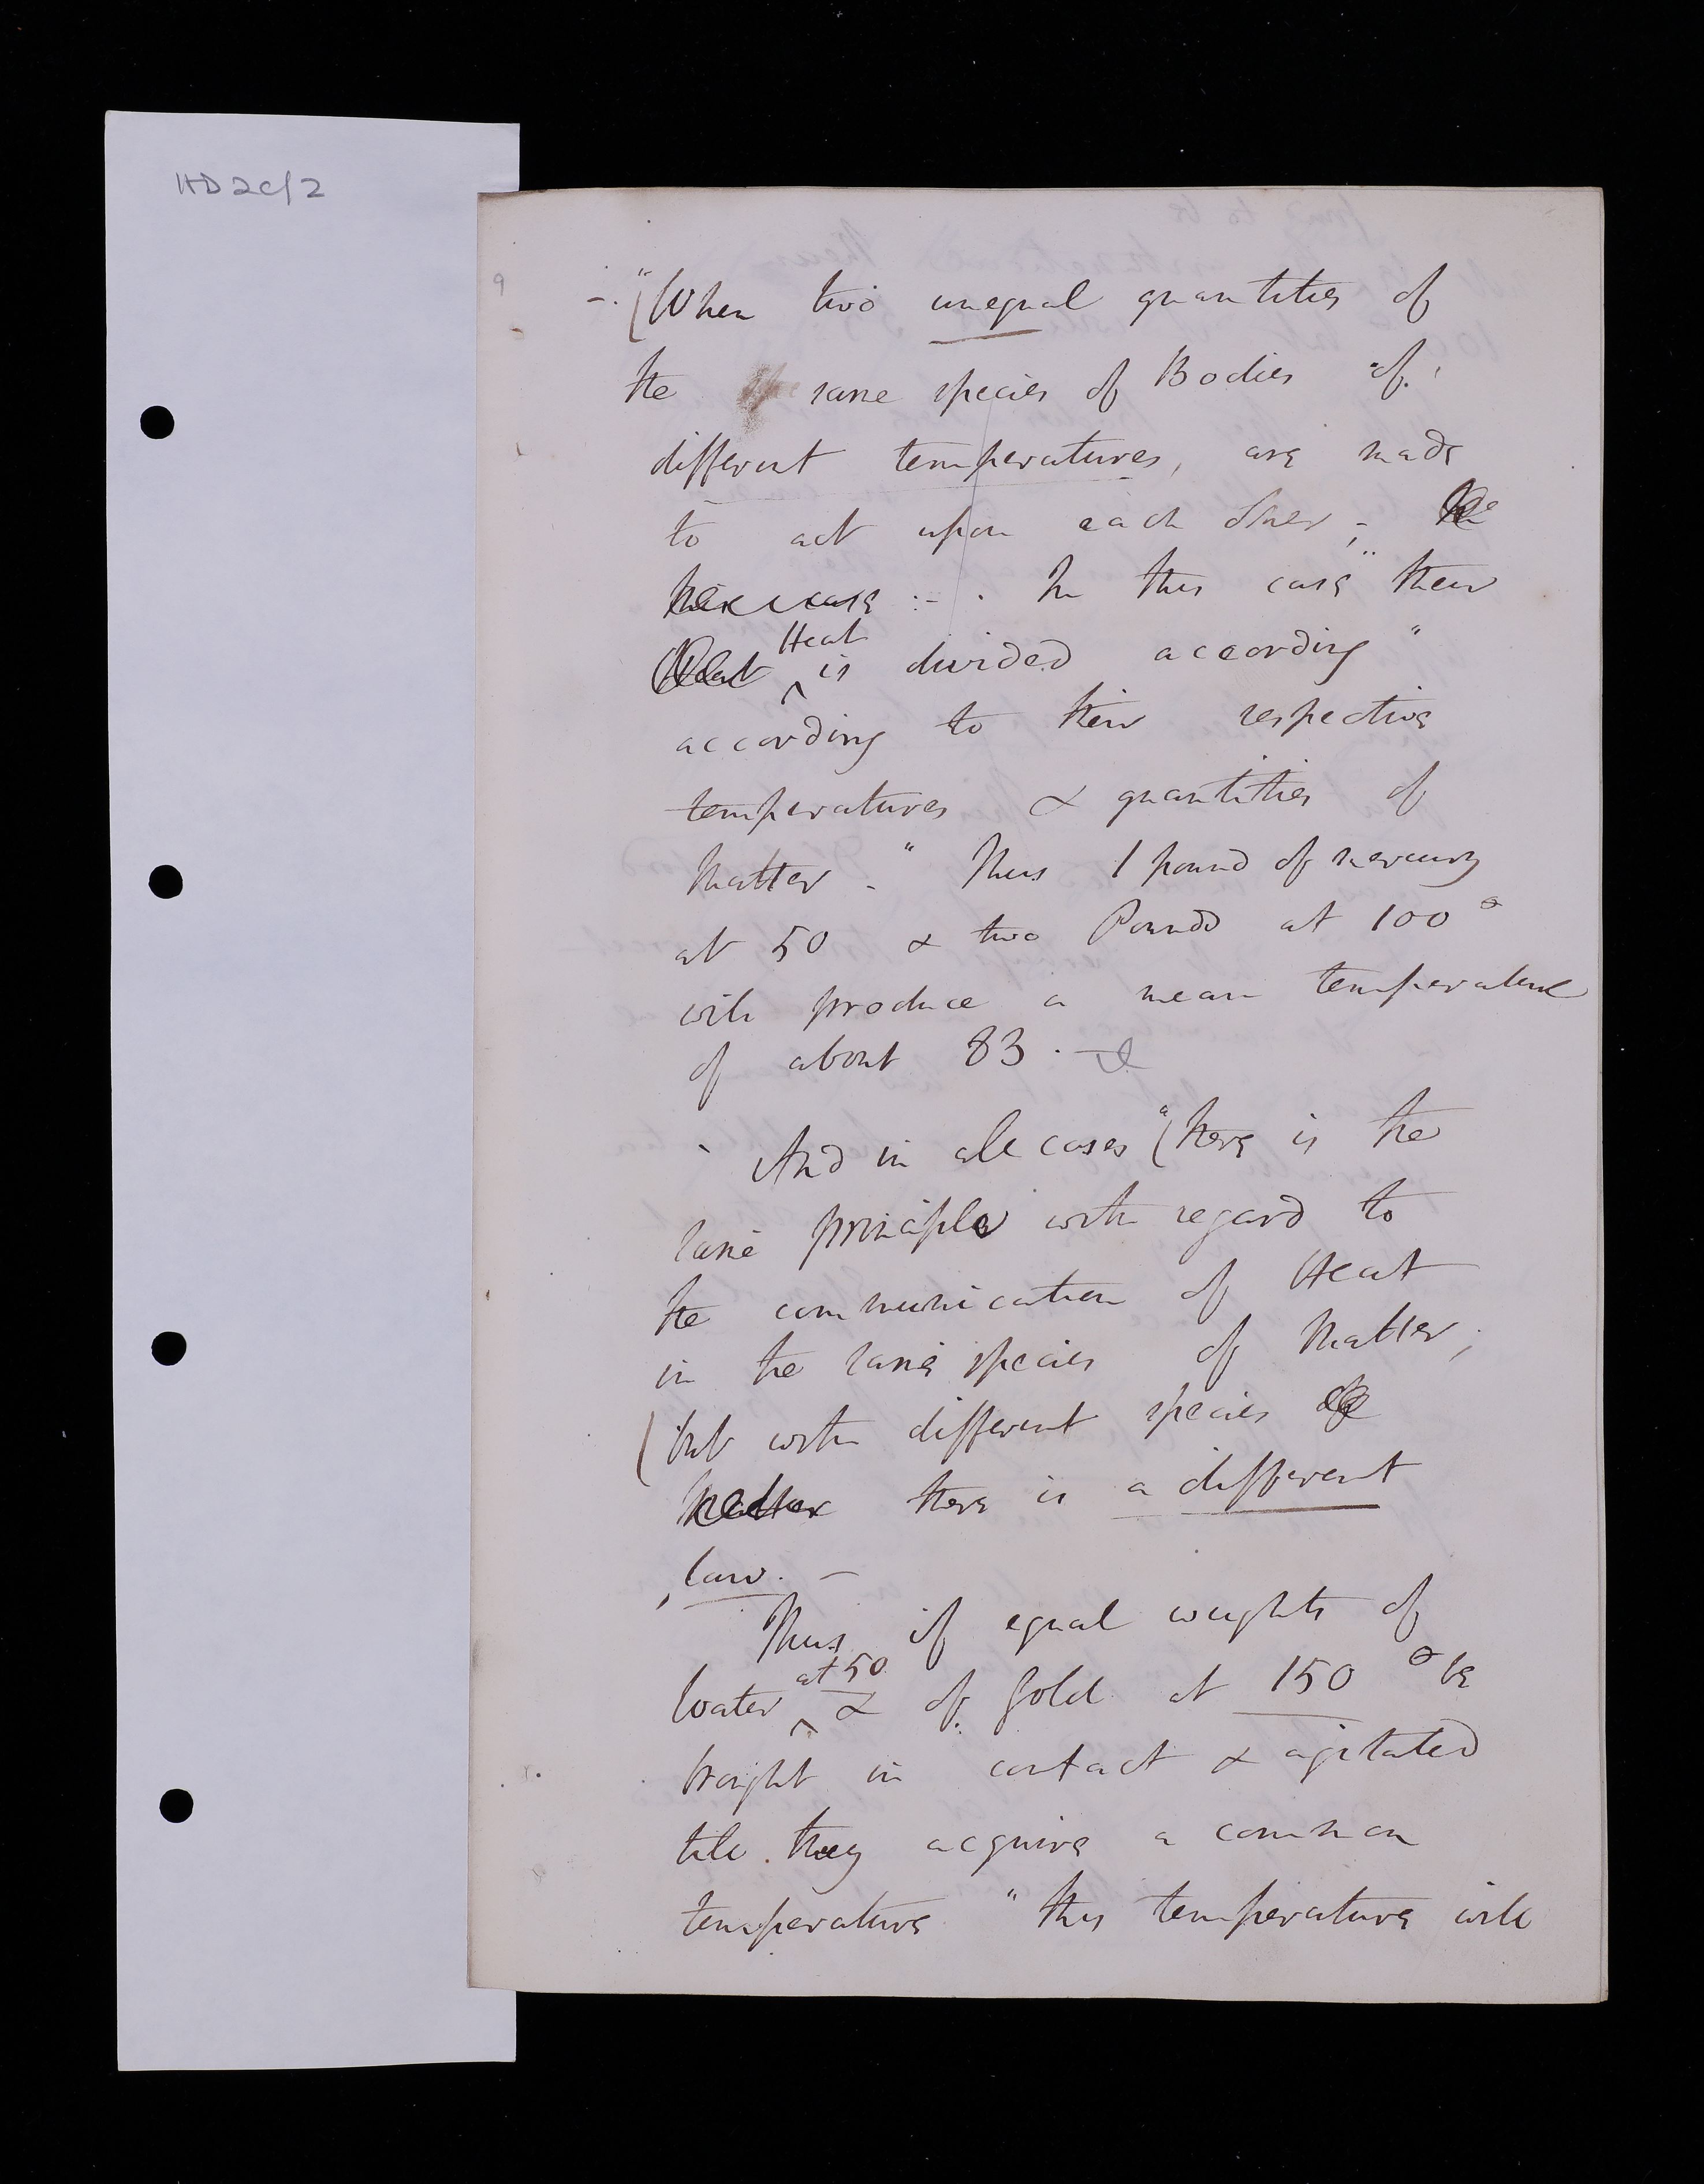 HD2c/2
9
-. "(When two unequal quantities of
the same species of Bodies of
different temperatures, are made
to act upon each other; -
case :- . In this case" their
Heat
Heat ^ is divided according "
according to their respective
temperatures & quantities of
Matter - " Thus 1 pound of mercury
at 50 & two Pounds at 100°
will produce a mean temperature
of about 83 . -
And in all cases "(there is the
same principle with regard to
the communication of Heat
in the same species of Matter;
(but with different species of
Matter there is a different
law. -
Thus if equal weights of
at 50
water ^ & of Gold at 150° be
brought in contact & agitated
till they acquire a common
temperature " this temperature will